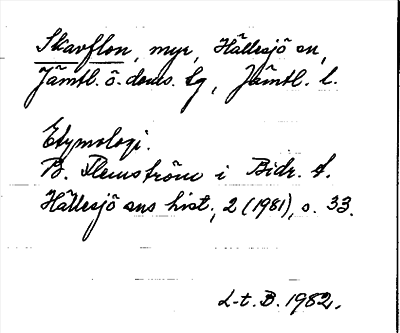 Skavflon, myr, Hällesjö sn,
Jämtl. ö. doms. lg, Jämtl. l.
Etymologi.
B. Flemström i Bidr. t.
Hällesjö sns hist., 2 (1981), s. 33.
L-t. B. 1982.